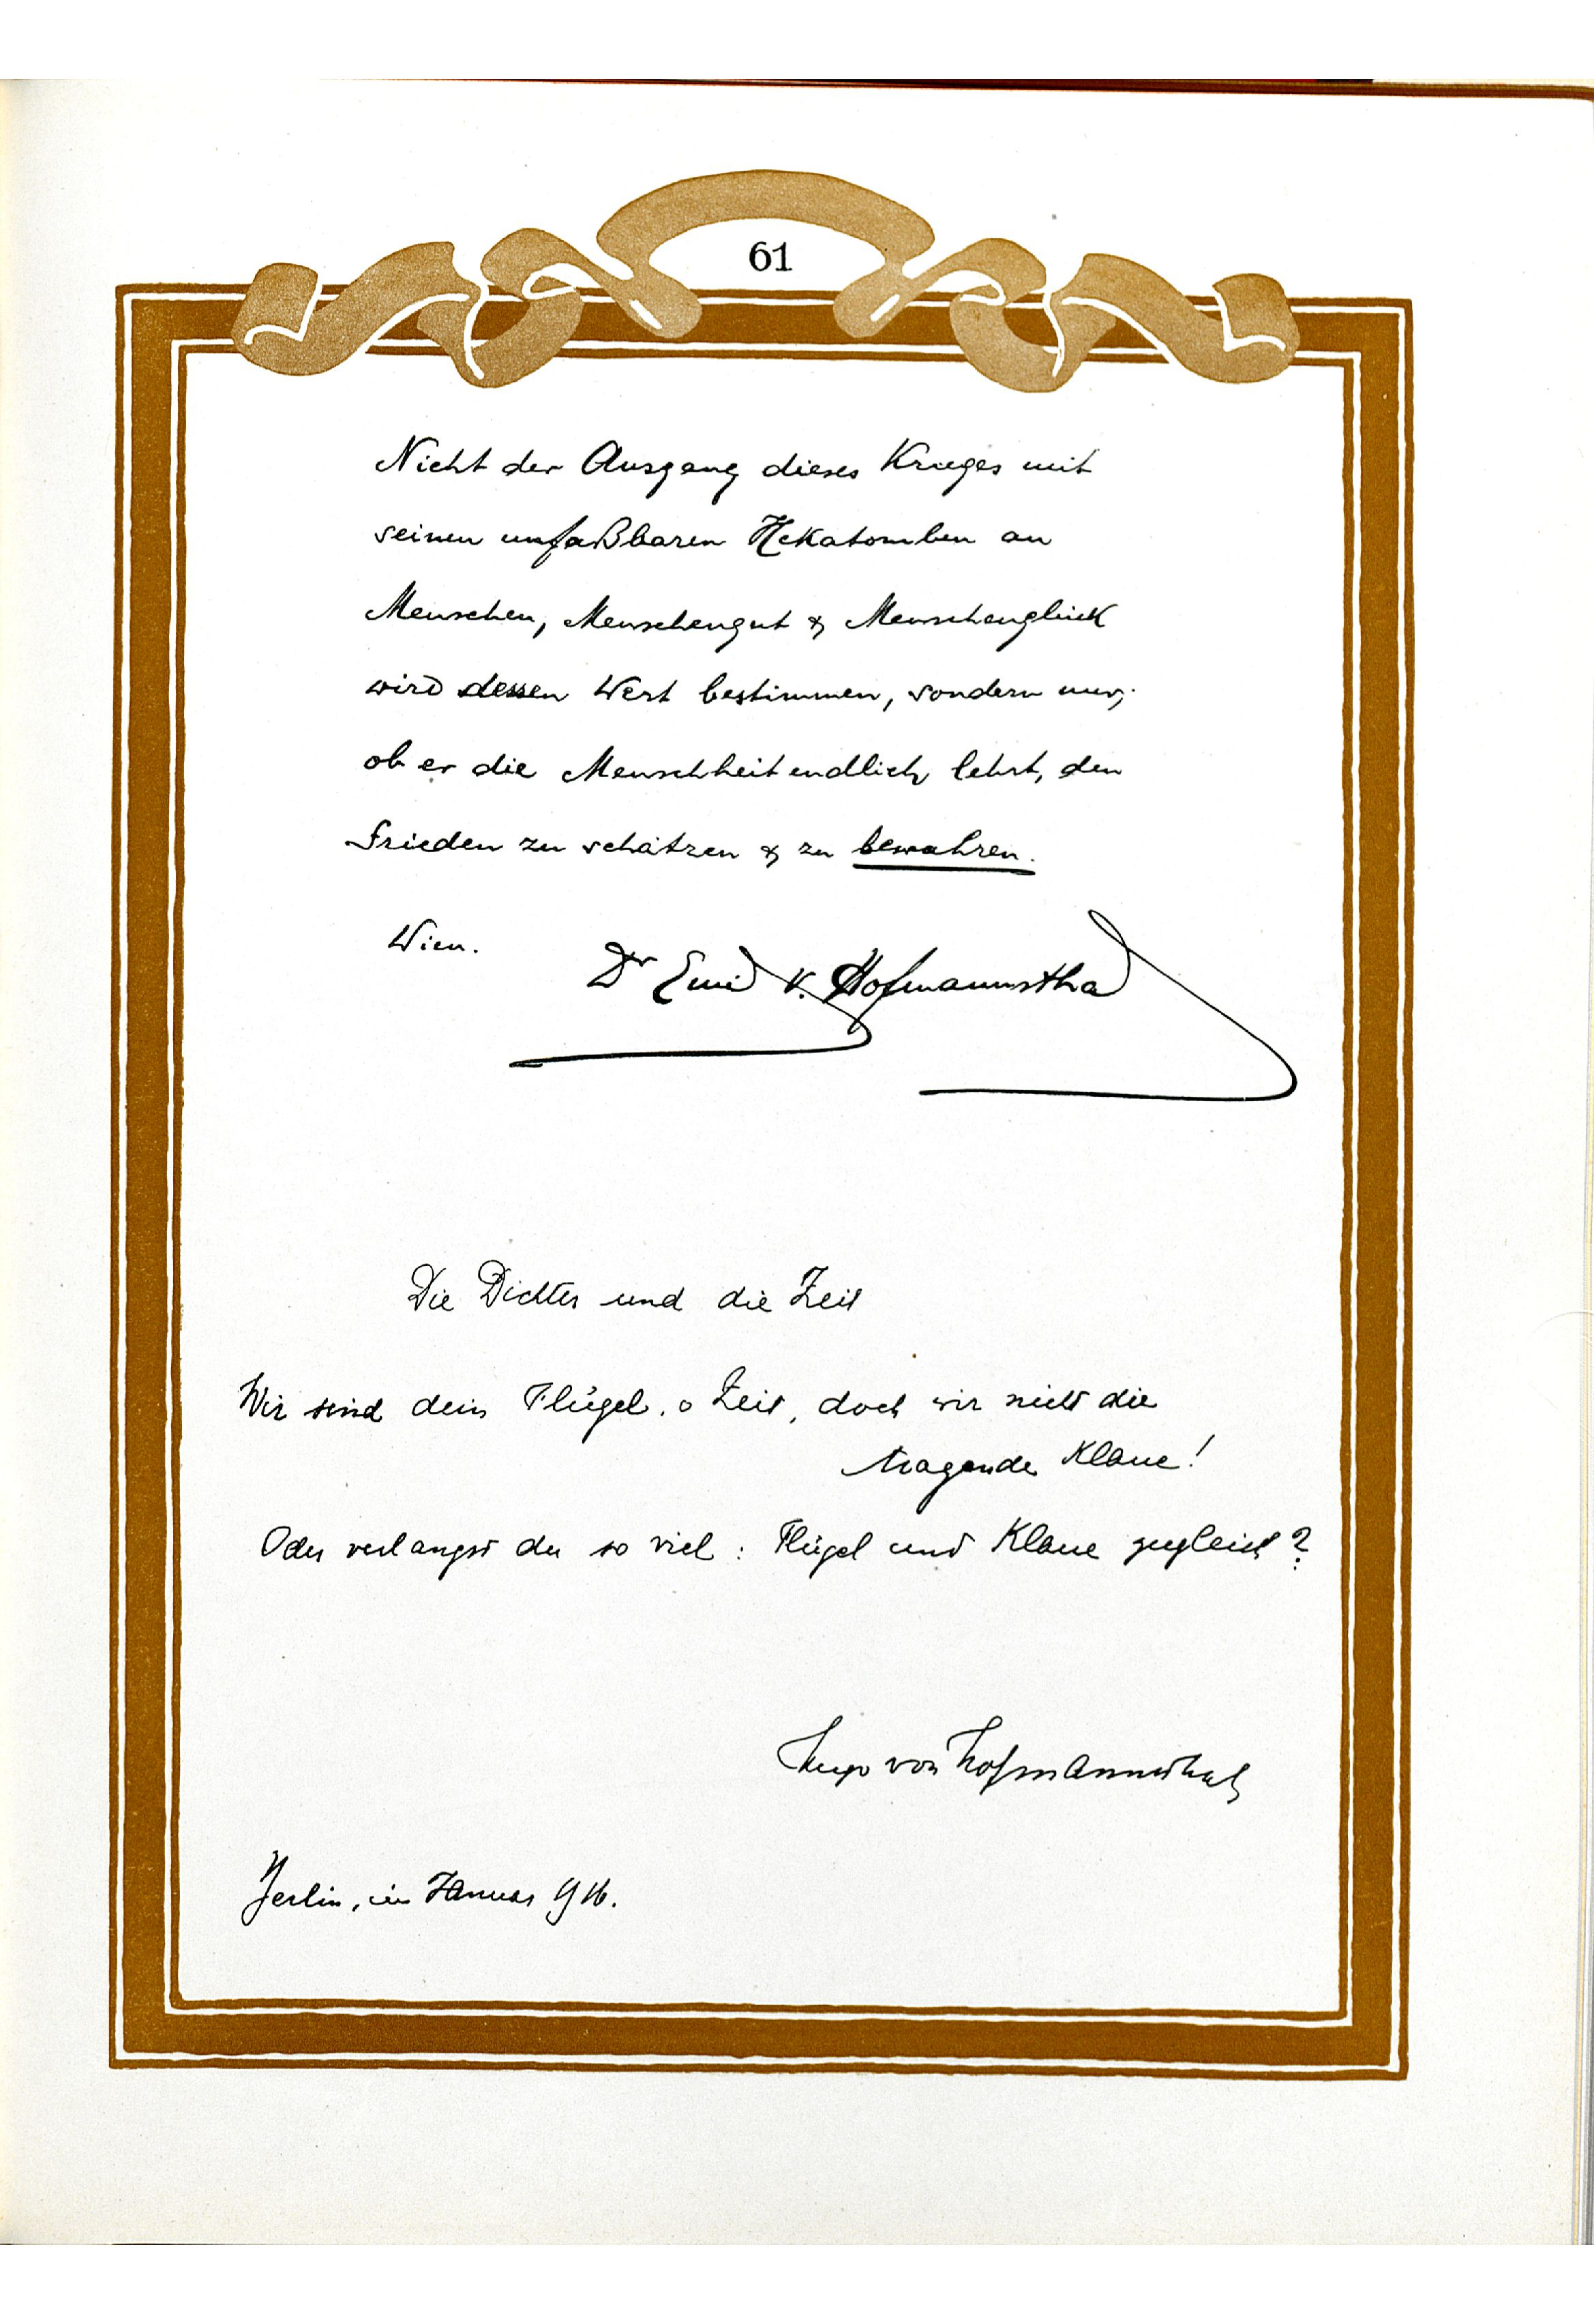 61
Nicht der Ausgang dieses Krieges mit
seinen unfaßbaren Hekatomben an
Menschen, Menschengut & Menschenglück
wird dessen Wert bestimmen, sondern nur,
ob er die Menschheit endlich lehrt, den
Frieden zu schätzen & zu bewahren.
Wien.
Dr Emil v. Hofmannsthal
Die Dichter und die Zeit
Wir sind dein Flügel, o Zeit, doch wir nicht die
tragende Klaue!
Oder verlangst du so viel: Flügel und Klaue zugleich?
Hugo von Hofmannsthal
Berlin, im Januar 916.